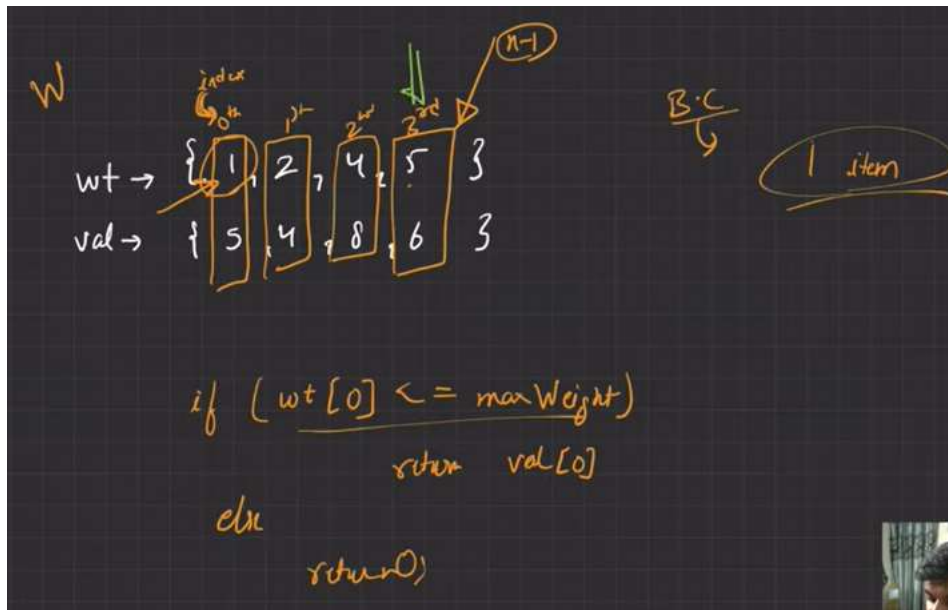 W
index
0th 1st 2nd 3rd n-1
wt → { 1, 2, 4, 5 }
val → { 5, 4, 8, 6 }
B.C
1 item
if (wt[0] <= maxWeight)
return val[0]
else
return 0;